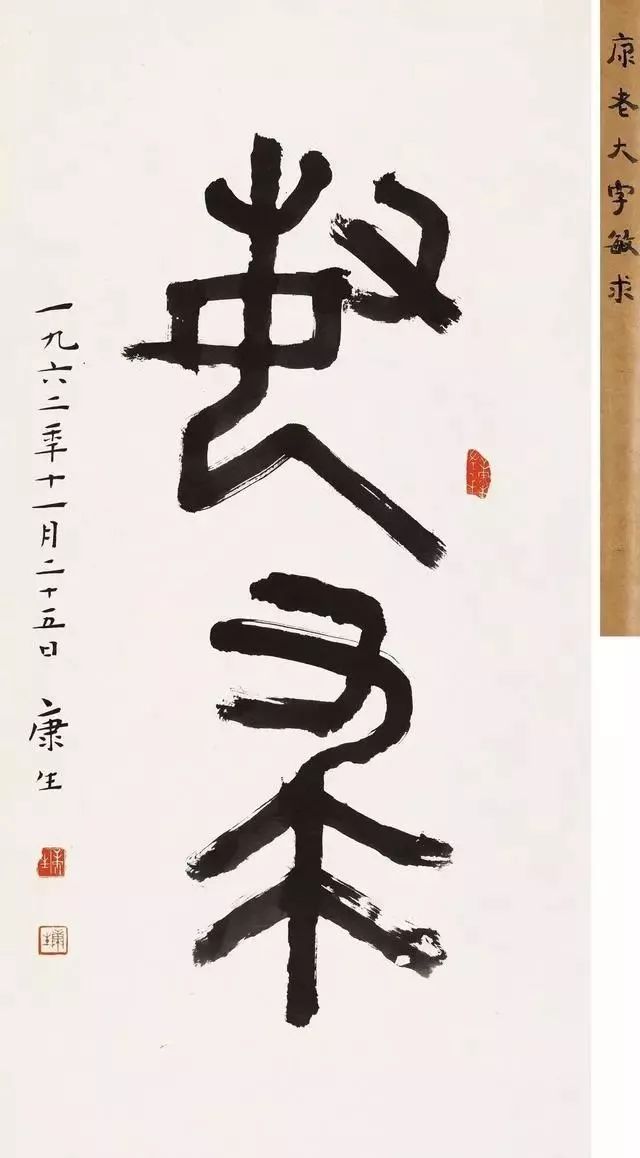 康老大字敏求
敏求
一九六二年十一月二十五日 康生